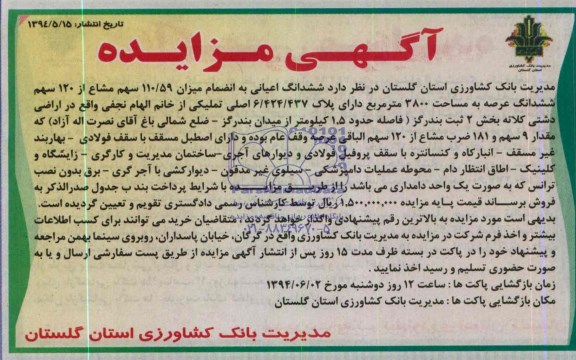 تاریخ انتشار: ۱۳۹۴/۵/۱۵
مدیریت بانک کشاورزی
استان گلستان
آگهی مزایده
مدیریت بانک کشاورزی استان گلستان در نظر دارد ششدانگ اعیانی به انضمام میزان ۱۱۰/۵۹ سهم مشاع از ۱۲۰ سهم
ششدانگ عرصه به مساحت ۳۸۰۰ مترمربع دارای پلاک ۶/۴۲۴/۴۳۷ اصلی تملیکی از خانم الهام نجفی واقع در اراضی
دشتی کلاته بخش ۲ ثبت بندرگز ( فاصله حدود ۱،۵ کیلومتر از میدان بندرگز - ضلع شمالی باغ آقای نصرت اله آزاد) که
مقدار ۹ سهم و ۱۸۱ ضرب مشاع از ۱۲۰ سهم الباقی عرصه وقف عام بوده و دارای اصطبل مسقف با سقف فولادی - بهاربند
غیر مسقف - انبارکاه و کنسانتره با سقف پروفیل فولادی و دیوارهای آجری-ساختمان مدیریت و کارگری - زایشگاه و
کلینیک - اطاق انتظار دام - محوطه عملیات دامپزشکی - سیلوی غیر مدفون - دیوارکشی با آجر گری - برق بدون نصب
ترانس که به صورت یک واحد دامداری می باشد را از طریق مزایده با شرایط پرداخت بند ب جدول صدرالذکر به
فروش برساند قیمت پایه مزایده ۱,۵۰۰,۰۰۰,۰۰۰ ریال توسط کارشناس رسمی دادگستری تقویم و تعیین گردیده است.
بدیهی است مورد مزایده به بالاترین رقم پیشنهادی واگذار خواهد گردید. متقاضیان خرید می توانند برای کسب اطلاعات
بیشتر و اخذ فرم شرکت در مزایده به مدیریت بانک کشاورزی واقع در گرگان، خیابان پاسداران، روبروی سینما بهمن مراجعه
و پیشنهاد خود را در پاکت در بسته ظرف مدت ۱۵ روز پس از انتشار آگهی مزایده از طریق پست سفارشی ارسال و یا به
صورت حضوری تسلیم و رسید اخذ نمایید .
زمان بازگشایی پاکت ها : ساعت ۱۲ روز دوشنبه مورخ ۱۳۹۴/۰۶/۰۲
مکان بازگشایی پاکت ها : مدیریت بانک کشاورزی استان گلستان
مدیریت بانک کشاورزی استان گلستان